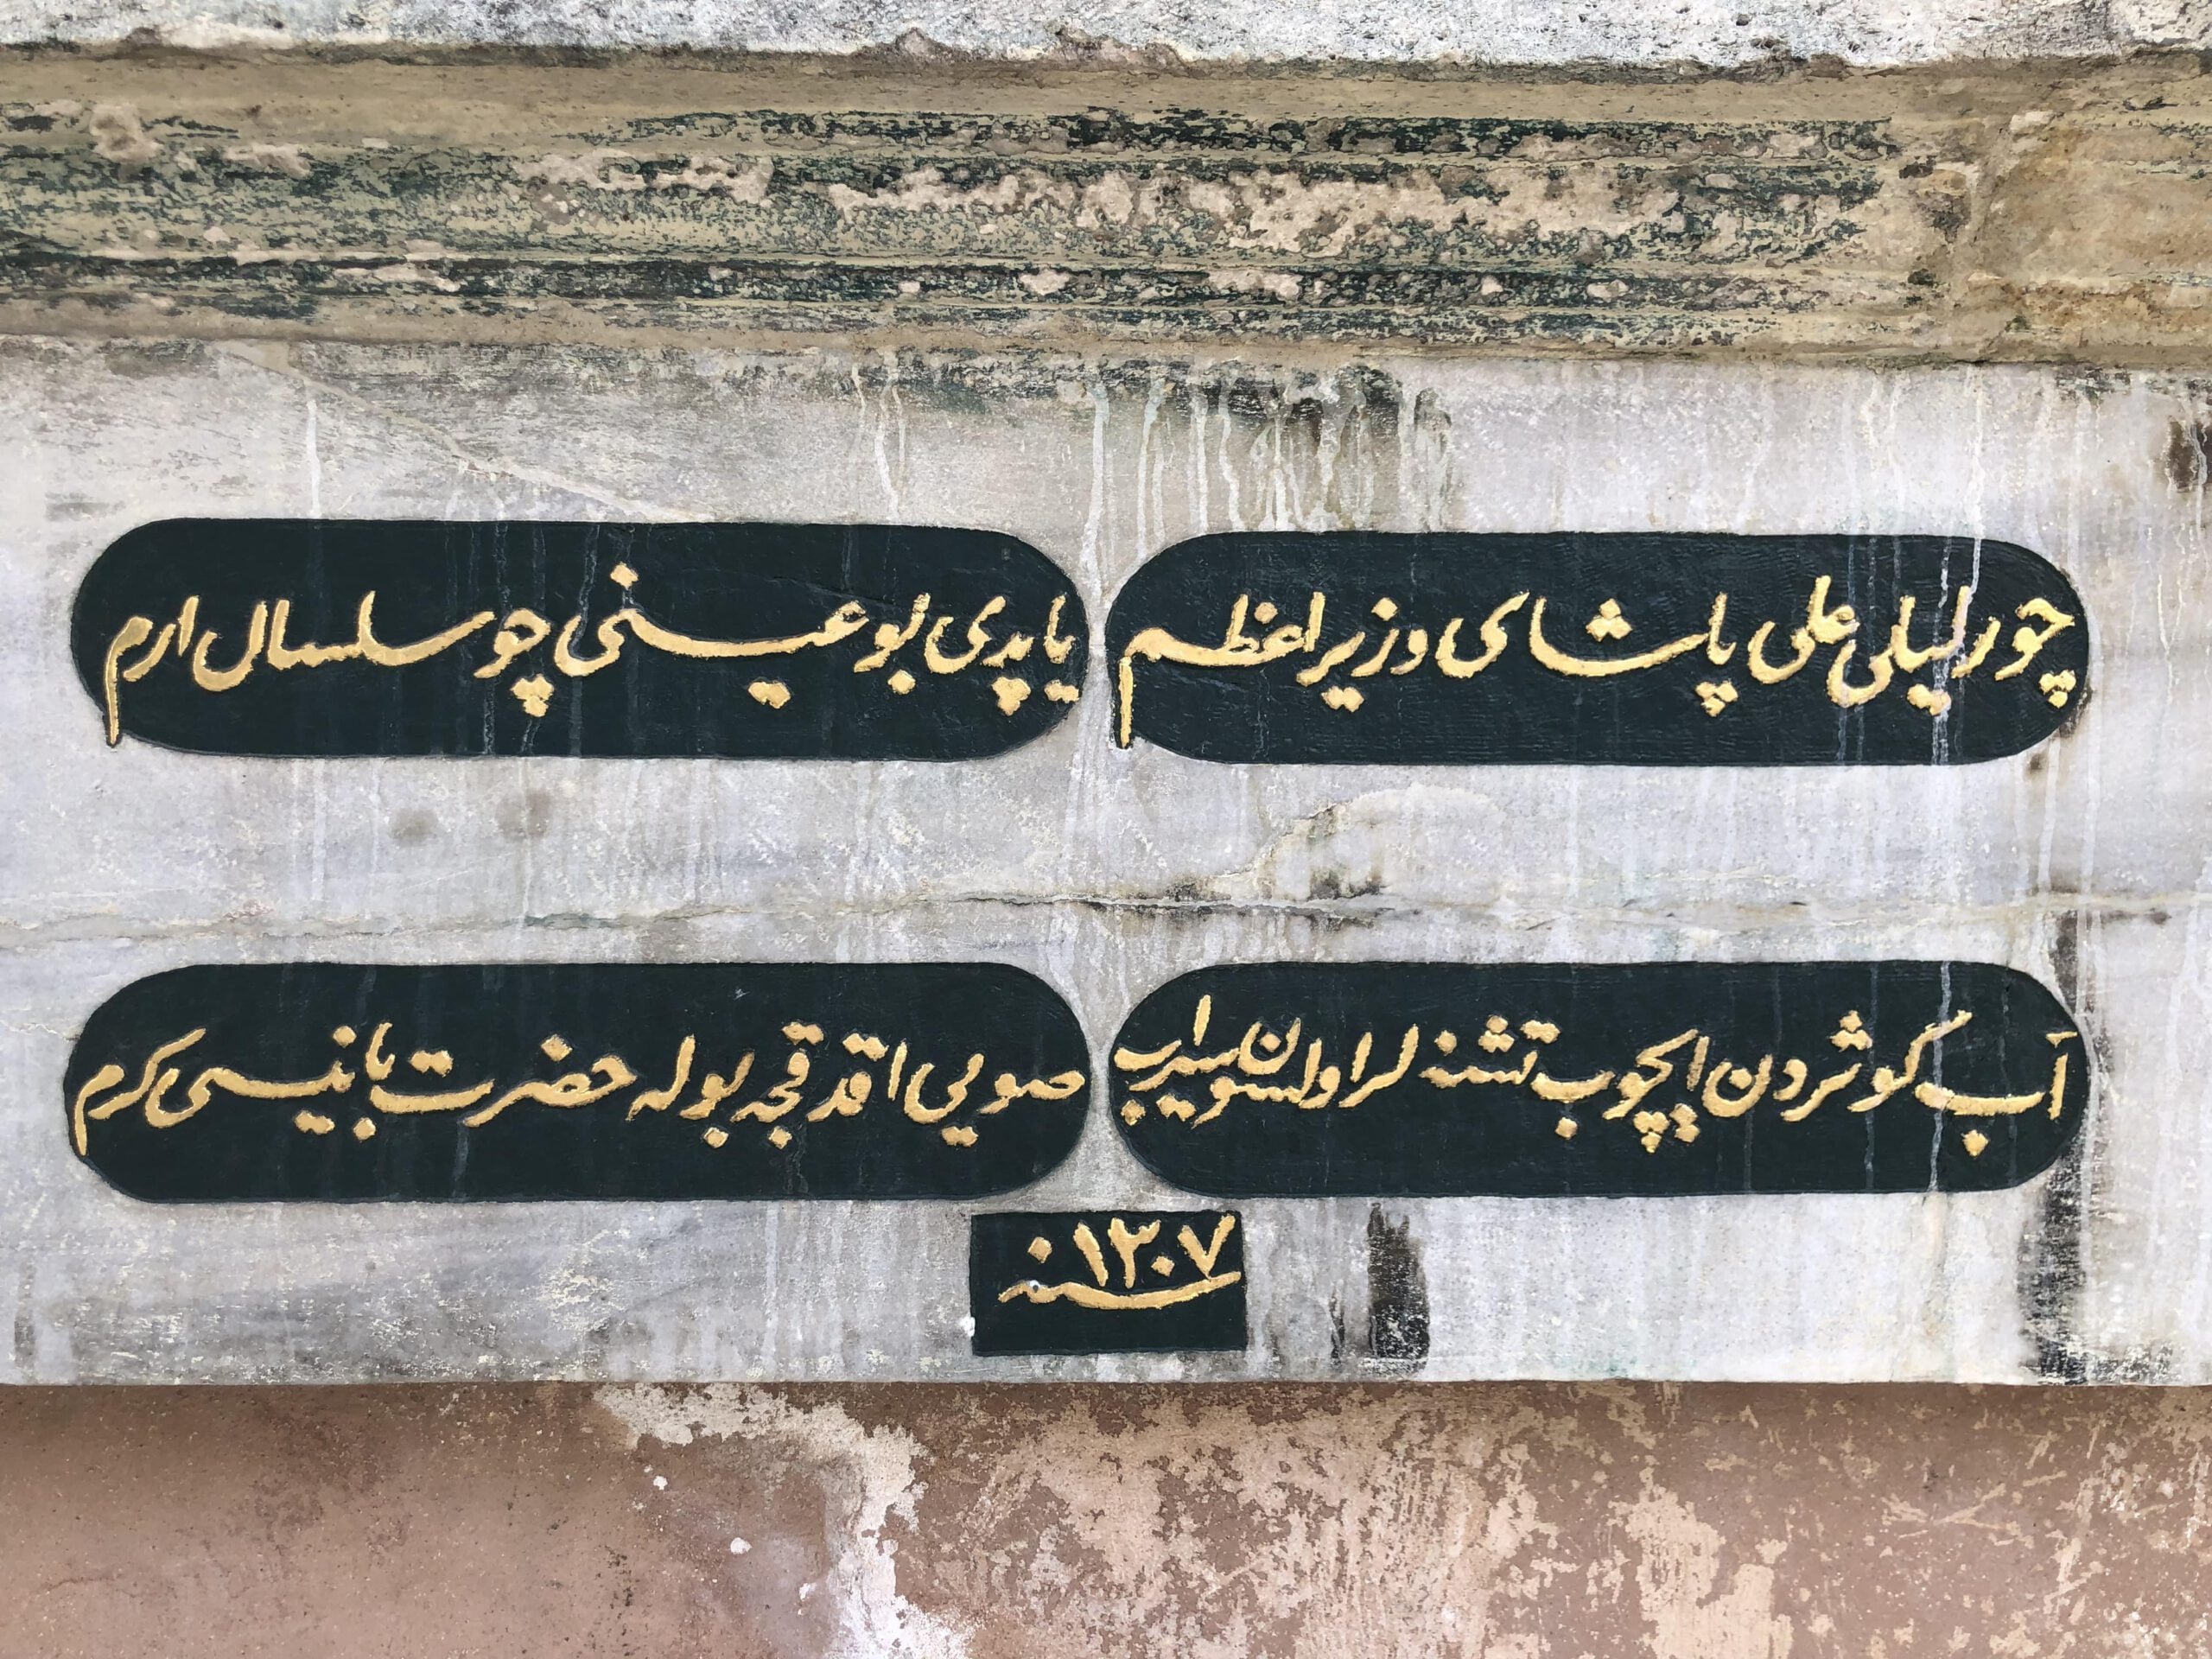 چورلیلی علی پاشای وزیر اعظم
یاپدی بو عینی چو سلسال ارم
آب کوثردن ایچوب تشنه لر اولسون سیراب
صویی اقدقجه بوله حضرت بانیسی کرم
سنه ١٣٠٧